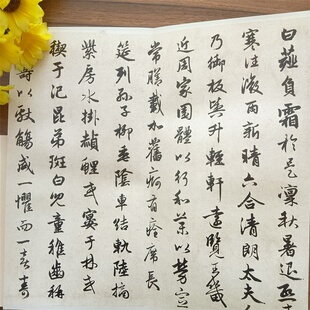 白薤負霜於是凜秋暑退熙
寒往微雨新晴六合清朗太夫
乃御板輿升輕軒遠覽王畿
近周家園體以行和藥以勞宣
常膳載加舊痾有痊席長
筵列孫子柳垂陰車結軌陸摘
紫房水掛赬鯉或宴于林或
禊于汜昆弟斑白兒童稚齒稱
壽以獻觴咸一懼而一喜壽